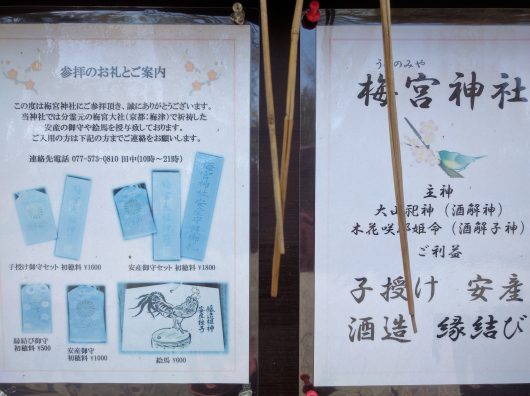 参拝のお礼とご案内
この度は梅宮神社にご参拝頂き、誠にありがとうございます。
当神社では分霊元の梅宮大社(京都:梅津)で祈祷した
安産の御守や絵馬を授与致しております。
ご入用の方は下記の方までご連絡をお願いします。
連絡先電話 077-573-0810 田中(10時~21時)
子授け御守セット 初穂料 ¥1000
安産御守セット 初穂料 ¥1800
縁結び御守
初穂料 ¥500
安産御守
初穂料 ¥600
絵馬 ¥600
うめのみや
梅宮神社
主神
大山祀神(酒解神)
木花咲耶姫命(酒解子神)
ご利益
子授け 安産
酒造 縁結び